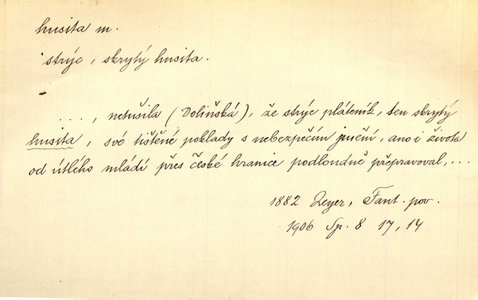 husita m.
strýc, skrytý husita.
..., netušila (Dolinská), že strýc pláteník, ten skrytý
husita, své tištěné poklady s nebezpečím jmění, ano i života
od útlého mládí přes české hranice podloudně přepravoval,...
1882 Zeyer, Fant. pov.
1906 Sp. 8 17, 14